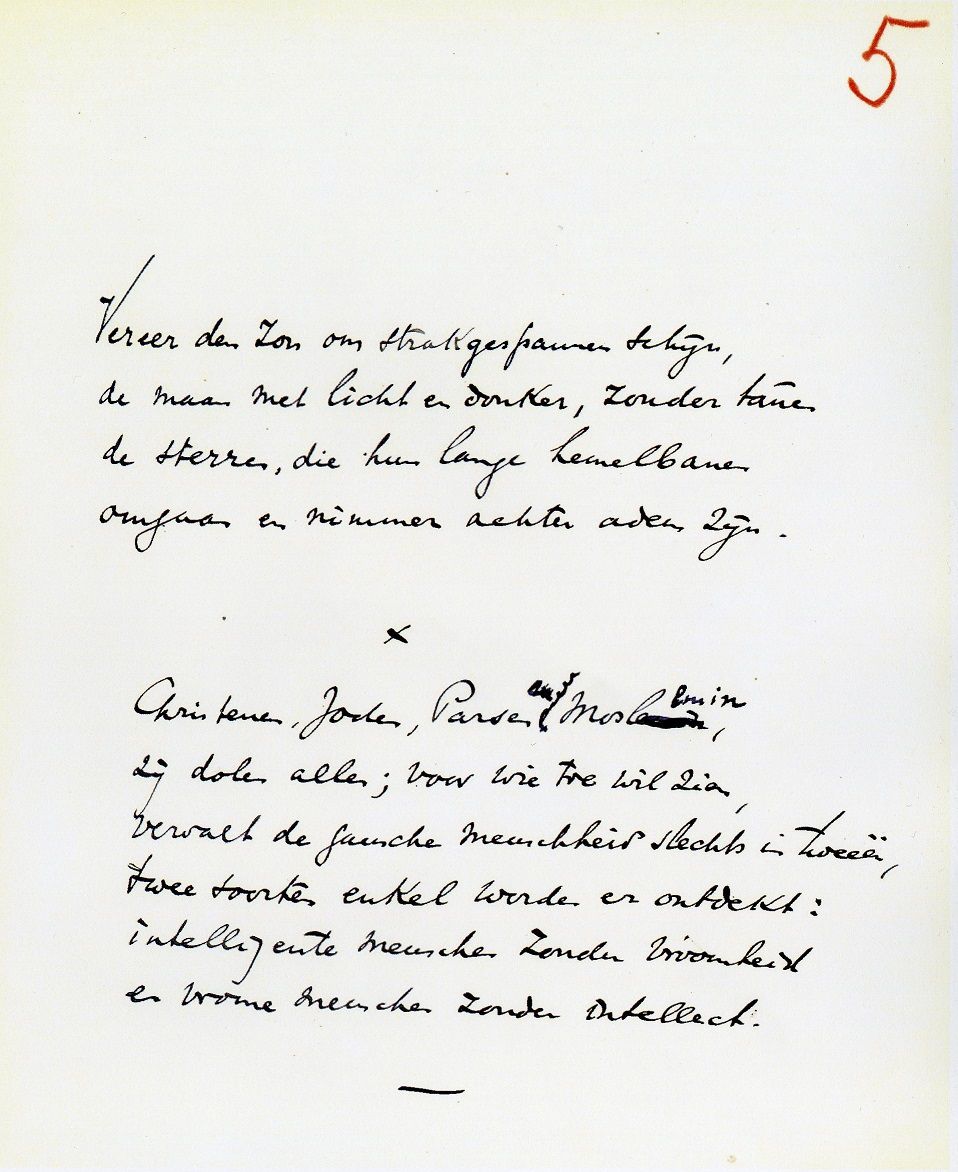 5
Vereer den Zon om strakgespannen schijn,
de maan met licht en donker, zonder tanen
de sterren, die hun lange hemelbanen
omgaan en nimmer achter adem zijn.
x
Christenen, Joden, Parsen en Moslemin,
zij dolen allen; voor wie wil zien,
vervalt de gansche menschheid slechts in tweeën,
twee soorten enkel worden er ontdekt:
intelligente menschen zonder vroomheid
en vrome menschen zonder intellect.